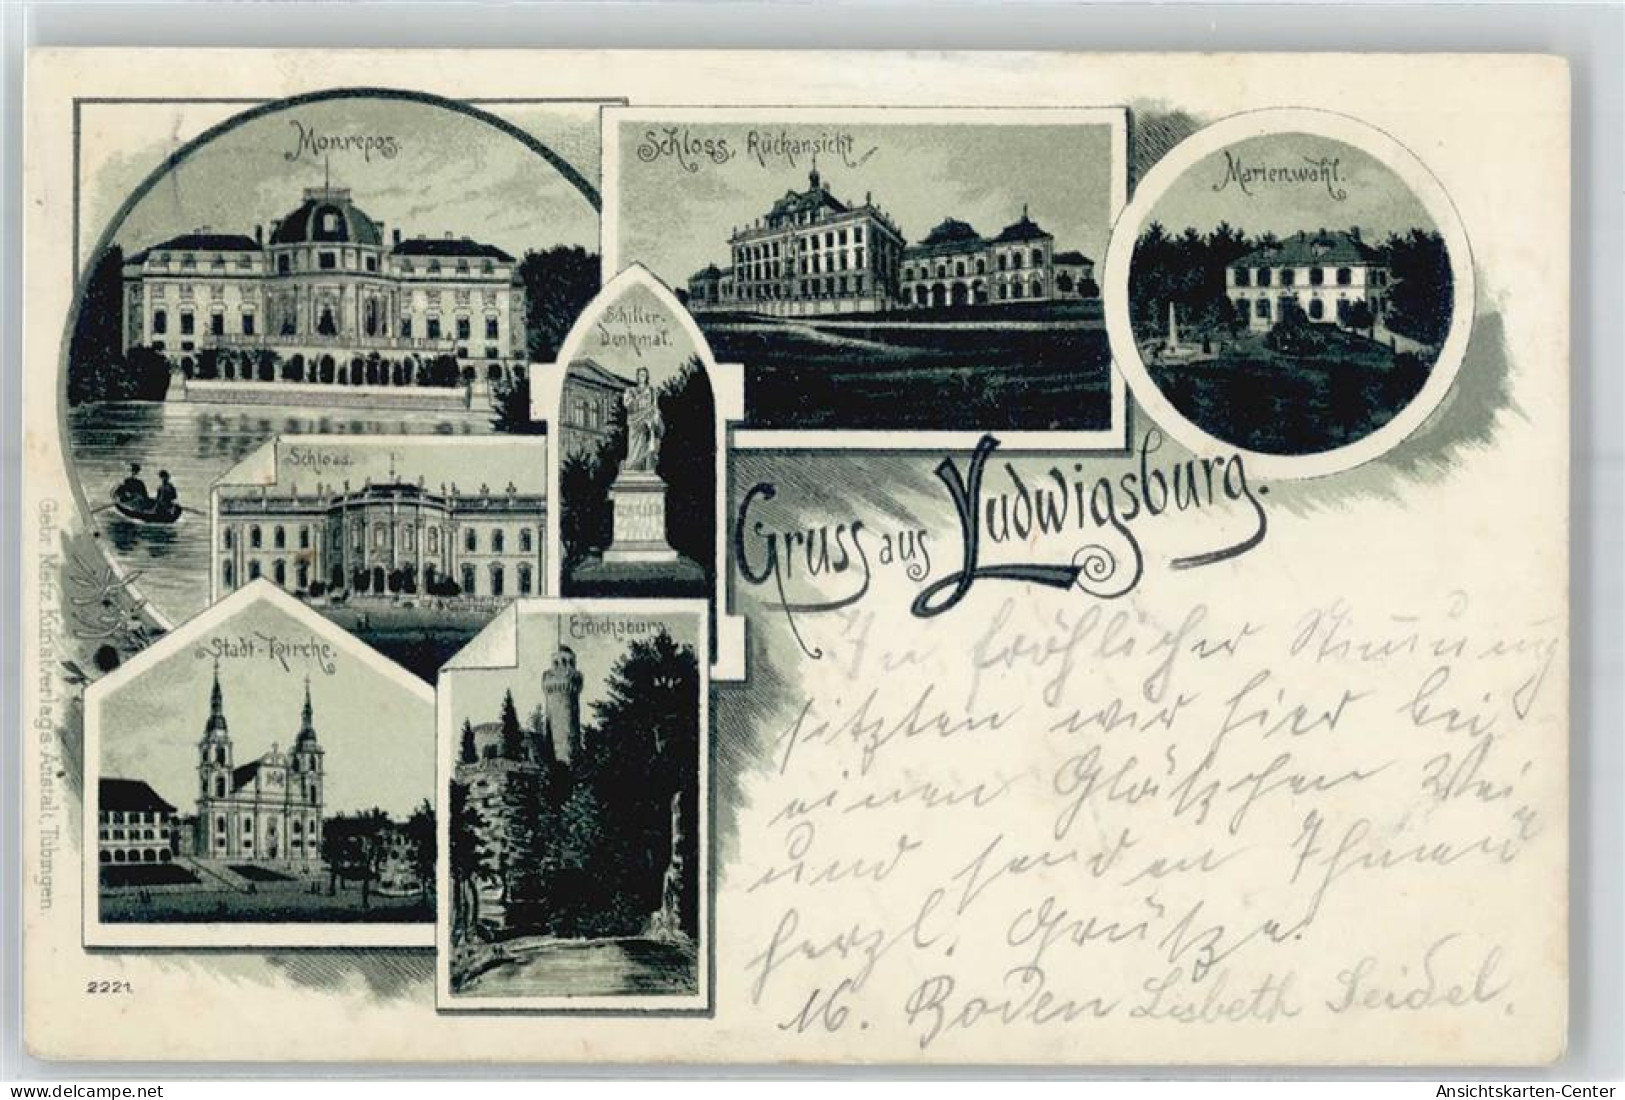 Monrepos.
Schloss, Rückansicht
Marienwahl.
Schiller-
Denkmal.
Schloss.
Gruss aus Ludwigsburg.
Stadt-Kirche.
Emichsburg.
In fröhlicher Stimmung
sitzten wir hier bei
einen Gläschen Wein
und senden Ihnen
herzl. Grüße.
M. Boden Lisbeth Seidel.
Gebr. Metz, Kunstverlags-Anstalt, Tübingen.
2221.
Ansichtskarten-Center